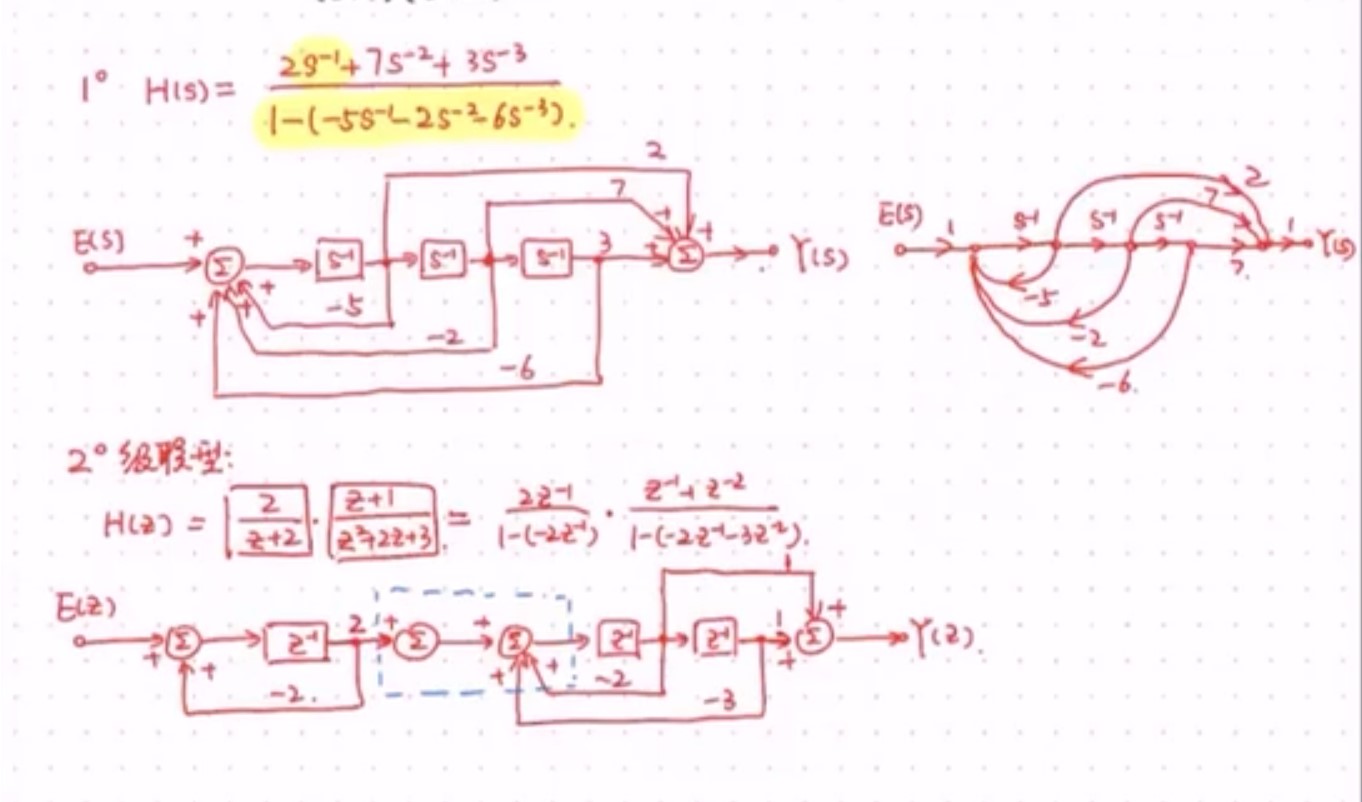 1° H(s) = (2s⁻¹ + 7s⁻² + 3s⁻³) / (1-(-5s⁻¹-2s⁻²-6s⁻³).
2
7
E(s) + Σ s⁻¹ s⁻¹ s⁻¹ 3 + + + Σ Y(s)
+ + + -5
-2
-6
2
7
E(s) 1 s⁻¹ s⁻¹ s⁻¹ 7. 1 Y(s)
-5
-2
-6.
2° 级联型:
H(z) = 2/(z+2) · (z+1)/(z²+2z+3) = 2z⁻¹/(1-(-2z⁻¹)) · (z⁻¹+z⁻²)/(1-(-2z⁻¹-3z⁻²)).
1
E(z) + Σ z⁻¹ 2 + Σ + Σ z⁻¹ z⁻¹ 1 + + Σ Y(z).
+ -2. + + -2
-3